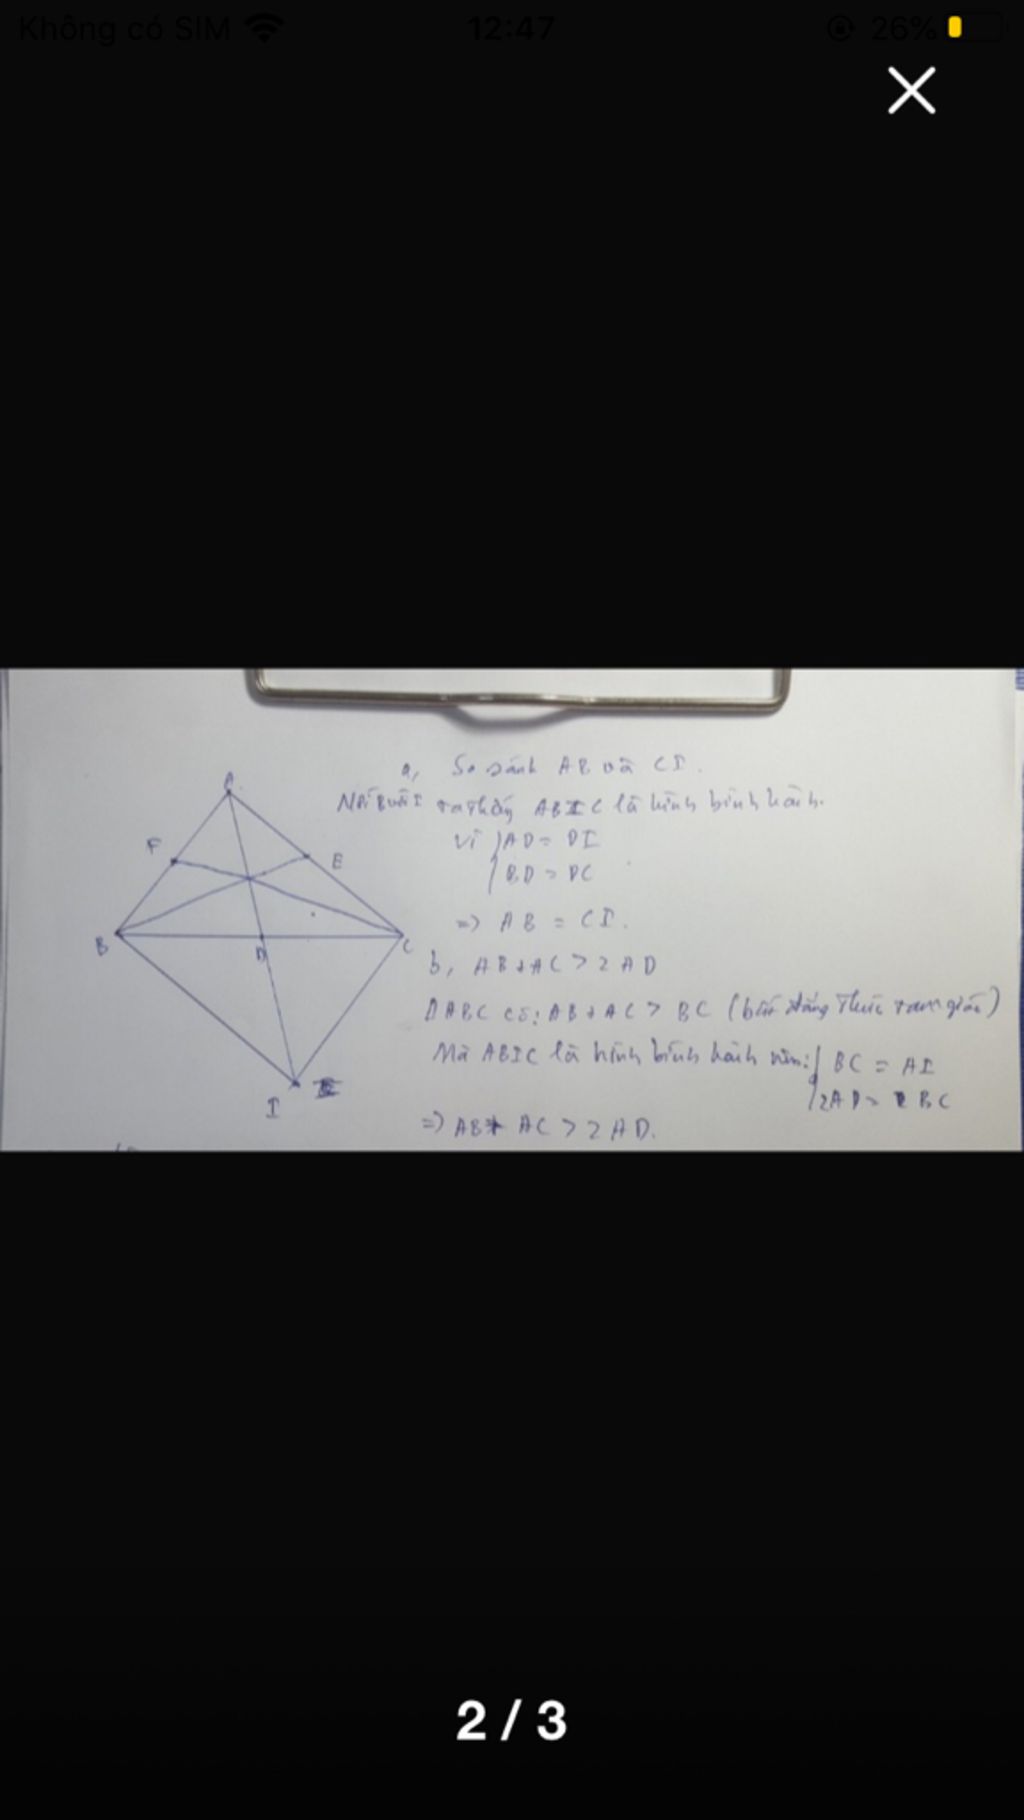 Không có SIM 12:47 26%
a, So sánh AB và CI.
Nối B với I ta thấy ABIC là hình bình hành.
Vì AD = DI
BD = DC
=> AB = CI.
b, AB + AC > 2AD
ΔABC có: AB + AC > BC (bất đẳng thức tam giác)
Mà ABIC là hình bình hành nên: BC = AI
2AD = BC
=> AB + AC > 2AD.
A
F
E
B
D
C
I
2 / 3